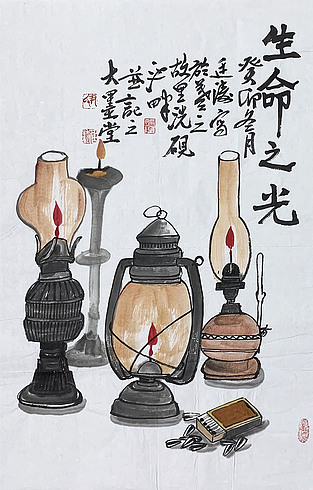 生命之光
癸卯冬月
寫
於羲之
故里洗硯
池畔
並記之
大墨堂